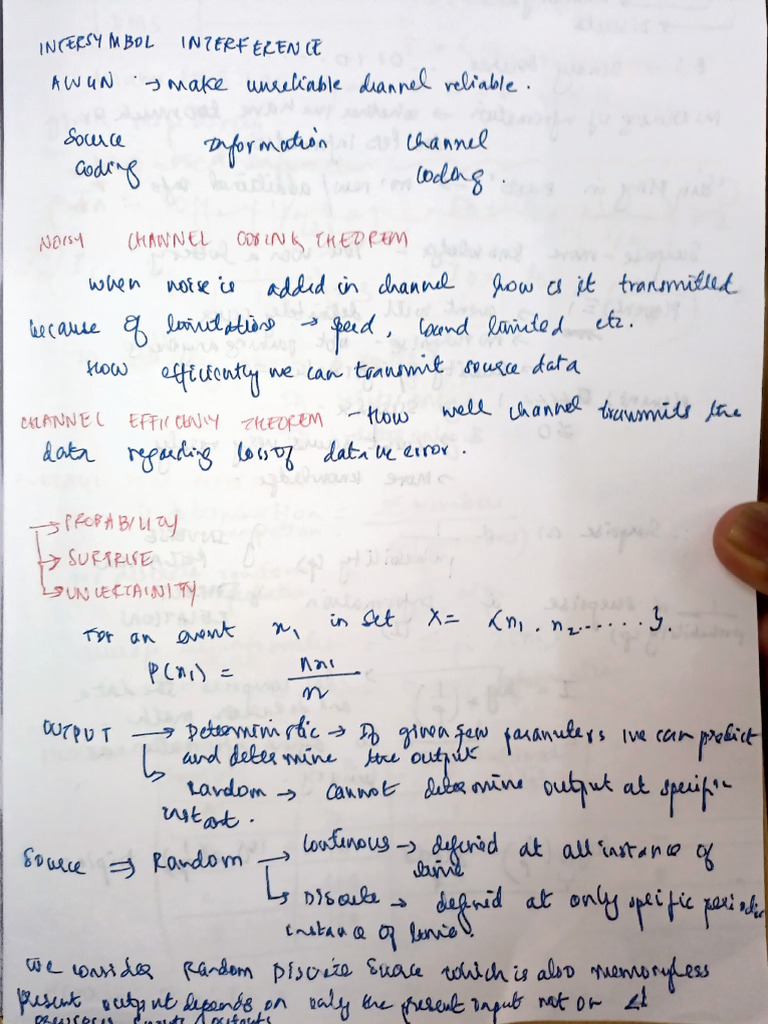 INTERSYMBOL INTERFERENCE
AWGN → make unreliable channel reliable.
Source Information channel
coding coding.
NOISY CHANNEL CODING THEOREM
when noise is added in channel how is it transmitted
because of limitations → speed, band limited etc.
How efficiently we can transmit source data
CHANNEL EFFICENIY THEOREM - How well channel transmits the
data regarding loss of data ie error.
→ PROBABILITY
→ SURPRISE
→ UNCERTAINITY
For an event x₁ in set X = {x₁, x₂......}.
P(x₁) = nx₁
n
OUTPUT → Deterministic → If given few parameters we can predict
and determine the output
Random → cannot determine output at specific
instant.
Source ⇒ Random → Continous → defined at all instance of
time
→ Discrete → defined at only specific periodic
instance of time.
We consider Random Discrete Source which is also memoryless
Present output depends on only the present input not on
previous inputs/outputs